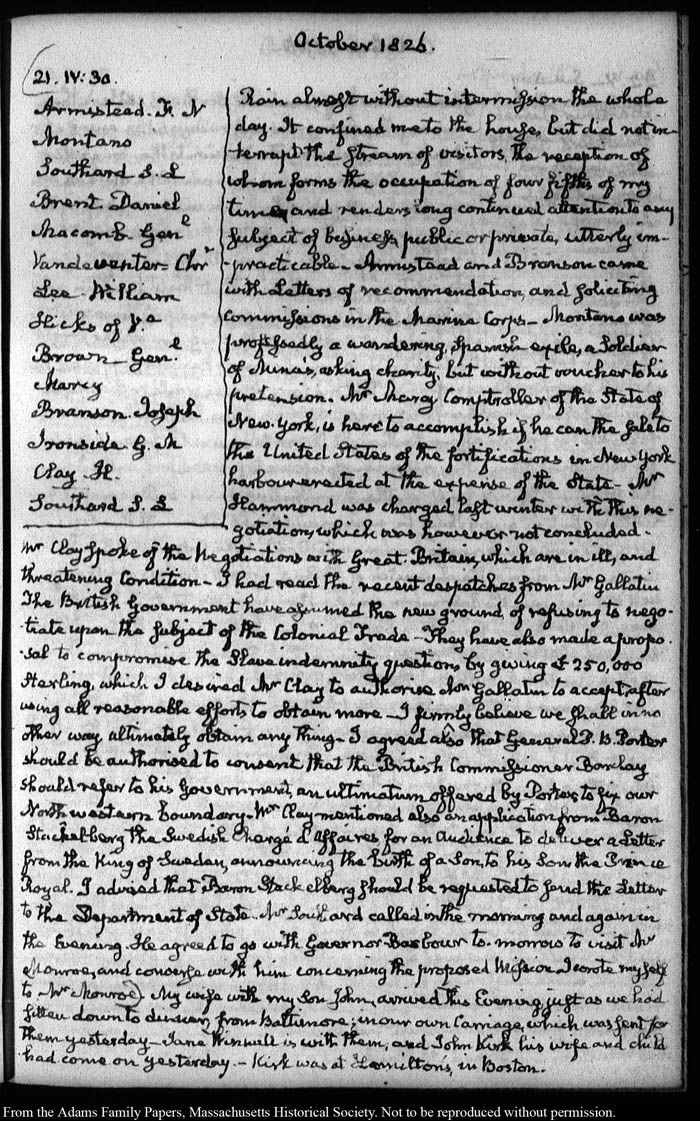 October 1826.
21. IV: 30.
Armistead. F. N
Montano
Southard S. L
Brent. Daniel
Macomb- Genl
Vandeventer- Chr
Lee- William
Hicks of Va
Brown- Genl.
Marcy
Branson. Joseph
Ironside. G. M
Clay. H.
Southard S. L
Rain almost without intermission the whole
day. It confined me to the house, but did not in-
-terrupt the stream of visitors, the reception of
whom forms the occupation of four fifths of my
time, and renders long continued attention to any
subject of business, public or private, utterly im-
-practicable- Armistead and Branson came
with Letters of recommendation, and soliciting
commissions in the Marine Corps- Montano was
professedly a wandering, Spanish exile, a Soldier
of Mina's, asking charity, but without voucher to his
pretension. Mr Marcy Comptroller of the State of
New-York, is here to accomplish if he can the sale to
the United States of the fortifications in New York
harbour erected at the expense of the State- Mr
Hammond was charged last winter with this ne-
gotiation, which was however not concluded-
Mr Clay spoke of the Negotiations with Great-Britain, which are in ill, and
threatening Condition- I had read the recent despatches from Mr Gallatin
The British Government have assumed the new ground of refusing to nego-
tiate upon the subject of the Colonial Trade- They have also made a propo-
-sal to compromise the Slave indemnity question, by giving £250,000
Sterling, which I desired Mr Clay to authorise Mr Gallatin to accept, after
using all reasonable efforts to obtain more- I firmly believe we shall in no
other way ultimately obtain any thing- I agreed also that General P. B. Porter
should be authorised to consent that the British Commissioner Barclay
should refer to his Government, an ultimatum offered by Porter to fix our
North western boundary- Mr Clay mentioned also an application from Baron
Stackelberg the Swedish Chargé d'Affaires for an Audience to deliver a Letter
from the King of Sweden, announcing the birth of a Son, to his Son the Prince
Royal. I advised that Baron Stackelberg should be requested to send the Letter
to the Department of State- Mr Southard called in the morning and again in
the Evening. He agreed to go with Governor Barbour to-morrow to visit Mr
Monroe, and converse with him concerning the proposed Mission. I wrote myself
to Mr Monroe) My wife with my Son John, arrived this Evening just as we had
sitten down to dinner, from Baltimore; in our own Carriage, which was sent for
them yesterday- Jane Winnull is with them, and John Kirk his wife and child
had come on yesterday.- Kirk was at Hamilton's, in Boston.
From the Adams Family Papers, Massachusetts Historical Society. Not to be reproduced without permission.